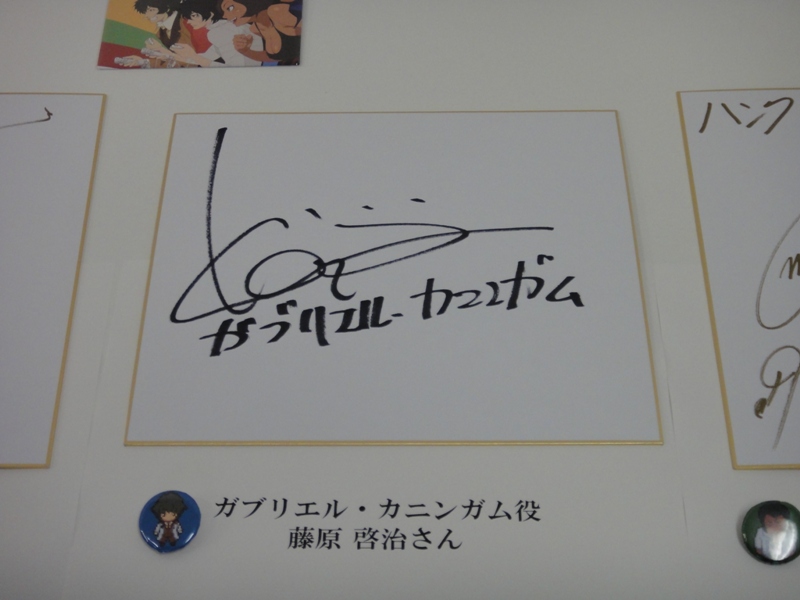 ハンク
ガブリエル・カニンガム
ガブリエル・カニンガム役
藤原 啓治さん